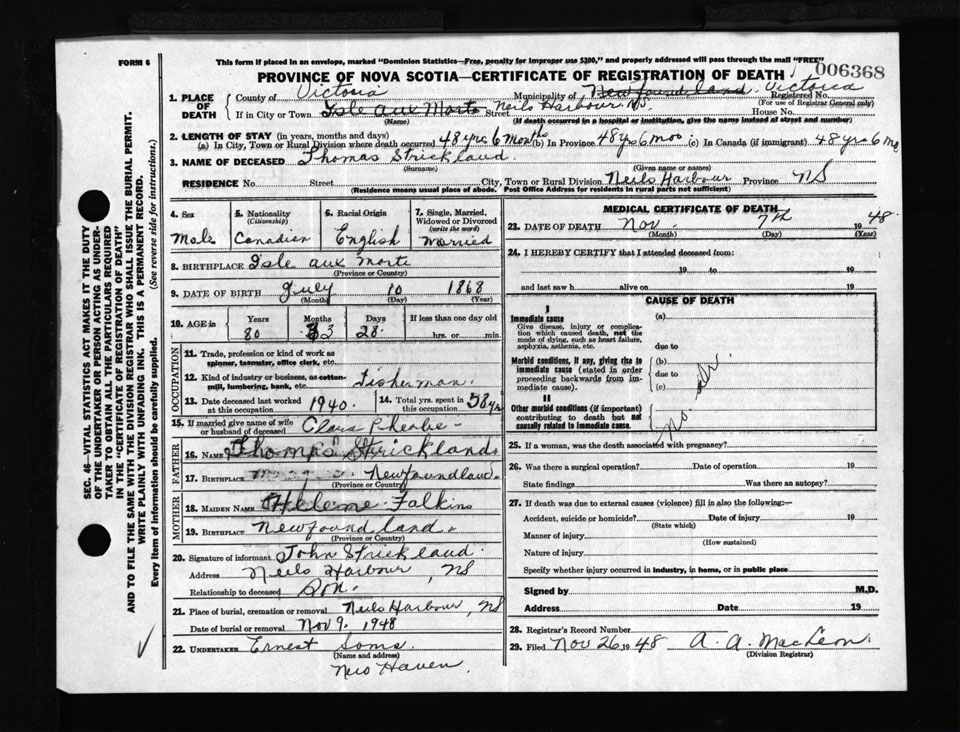 FORM 6
This form if placed in an envelope, marked "Dominion Statistics—Free, penalty for improper use $300," and properly addressed will pass through the mail "FREE"
PROVINCE OF NOVA SCOTIA—CERTIFICATE OF REGISTRATION OF DEATH
006368
1. PLACE OF DEATH
County of Victoria Municipality of Newfoundland Victoria Registered No.
(For use of Registrar General only)
If in City or Town Isle aux Morts Street Neils Harbour N.S. House No.
(Name) (If death occurred in a hospital or institution, give the name instead of street and number)
2. LENGTH OF STAY (in years, months and days)
(a) In City, Town or Rural Division where death occurred 48 yrs 6 months (b) In Province 48 yrs 6 mos. (c) In Canada (if immigrant) 48 yrs 6 mo
3. NAME OF DECEASED Thomas Strickland
(Surname) (Given name or names)
RESIDENCE No. Street City, Town or Rural Division Neils Harbour Province NS
(Residence means usual place of abode. Post Office Address for residents in rural parts not sufficient)
4. Sex
Male
5. Nationality
(Citizenship)
Canadian
6. Racial Origin
English
7. Single, Married, Widowed or Divorced
(write the word)
Married
8. BIRTHPLACE Isle aux Morte
(Province or Country)
9. DATE OF BIRTH July 10 1868
(Month) (Day) (Year)
10. AGE in
Years Months Days If less than one day old
80 3 28 hrs. or min.
OCCUPATION
11. Trade, profession or kind of work as
spinner, teamster, office clerk, etc.
12. Kind of industry or business, as cotton-
mill, lumbering, bank, etc. Fisherman.
13. Date deceased last worked
at this occupation 1940.
14. Total yrs. spent in
this occupation 58 yrs
15. If married give name of wife
or husband of deceased Clara Pheobe
FATHER
16. Name Thomas Strickland
17. Birthplace Newfoundland
(Province or Country)
MOTHER
18. Maiden Name Helene Falkins
19. Birthplace Newfoundland
(Province or Country)
20. Signature of informant John Strickland
Address Neils Harbour, NS
Relationship to deceased Son.
21. Place of burial, cremation or removal Neils Harbour, NS
Date of burial or removal Nov 9. 1948
22. UNDERTAKER Ernest Soms
(Name and address)
Neio Haven
MEDICAL CERTIFICATE OF DEATH
23. DATE OF DEATH Nov. 7th 1948
(Month) (Day) (Year)
24. I HEREBY CERTIFY that I attended deceased from:
19 to 19
and last saw h alive on 19
CAUSE OF DEATH
I
Immediate cause
Give disease, injury or complica-
tion which caused death, not the
mode of dying, such as heart failure,
asphyxia, asthenia, etc.
(a)
due to
Morbid conditions, if any, giving rise to
immediate cause (stated in order
proceeding backwards from im-
mediate cause).
(b)
due to
(c)
II
Other morbid conditions (if important)
contributing to death but not
causally related to immediate cause.
no. dr.
25. If a woman, was the death associated with pregnancy?
26. Was there a surgical operation? Date of operation 19
State findings Was there an autopsy?
27. If death was due to external causes (violence) fill in also the following:—
Accident, suicide or homicide? Date of injury 19
(State which)
Manner of injury
(How sustained)
Nature of injury
Specify whether injury occurred in industry, in home, or in public place
Signed by M.D.
Address Date 19
28. Registrar's Record Number
29. Filed Nov 26, 1948 A. A. MacLeon
(Division Registrar)
SEC. 46—VITAL STATISTICS ACT MAKES IT THE DUTY
OF THE UNDERTAKER OR PERSON ACTING AS UNDER-
TAKER TO OBTAIN ALL THE PARTICULARS REQUIRED
IN THE "CERTIFICATE OF REGISTRATION OF DEATH"
AND TO FILE THE SAME WITH THE DIVISION REGISTRAR WHO SHALL ISSUE THE BURIAL PERMIT.
WRITE PLAINLY WITH UNFADING INK. THIS IS A PERMANENT RECORD.
Every item of information should be carefully supplied. (See reverse side for instructions.)